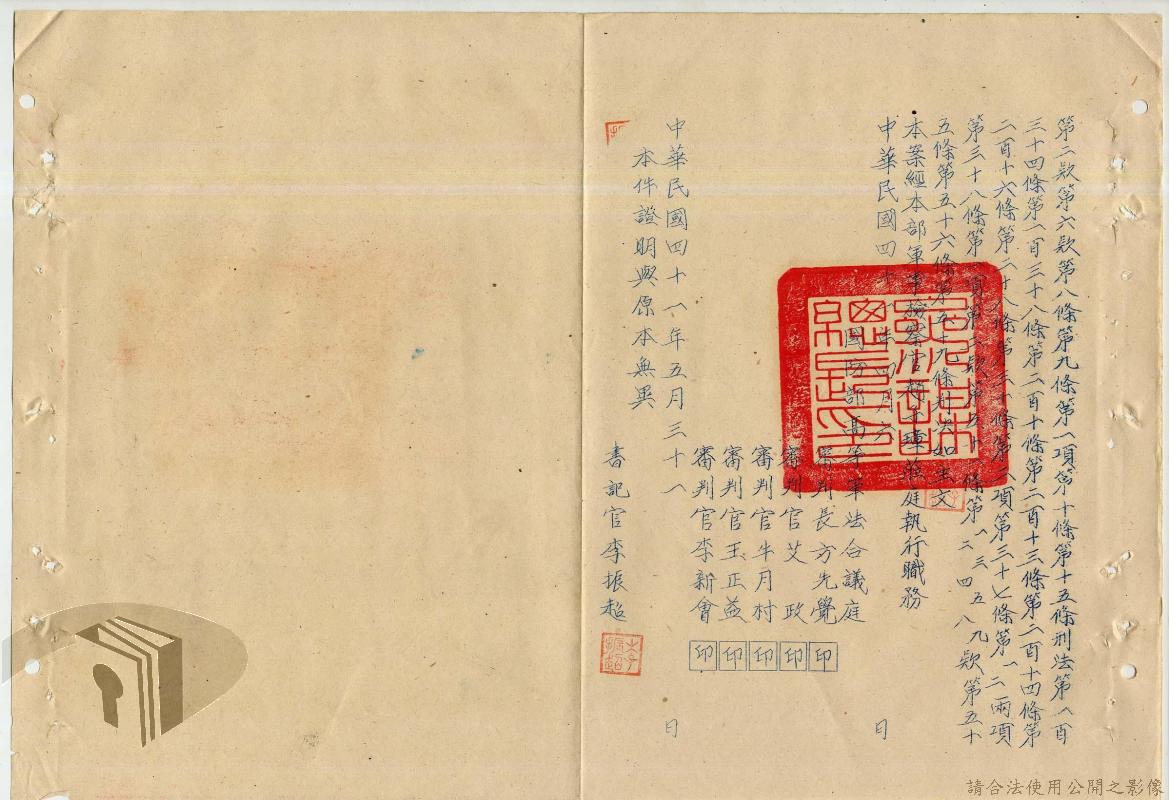 第二款第六款第八條第九條第一項第十條第十五條刑法第一百
三十四條第一百三十八條第二百十條第二百十三條第二百十四條第
二百十六條第二十八條第三十條第二項第三十七條第一二兩項
第三十八條第一項第二款第五十一條第一二三四五八九款第五十
五條第五十六條第五十九條判決如主文
本案經本部軍事檢察官蒞庭執行職務
中華民國四十一年四月六日
國防部高等軍法合議庭
審判長方先覺印
審判官艾政印
審判官牛月村印
審判官王正益印
審判官李新會印
中華民國四十一年五月三十一日
本件證明與原本無異
書記官李振超
請合法使用公開之影像